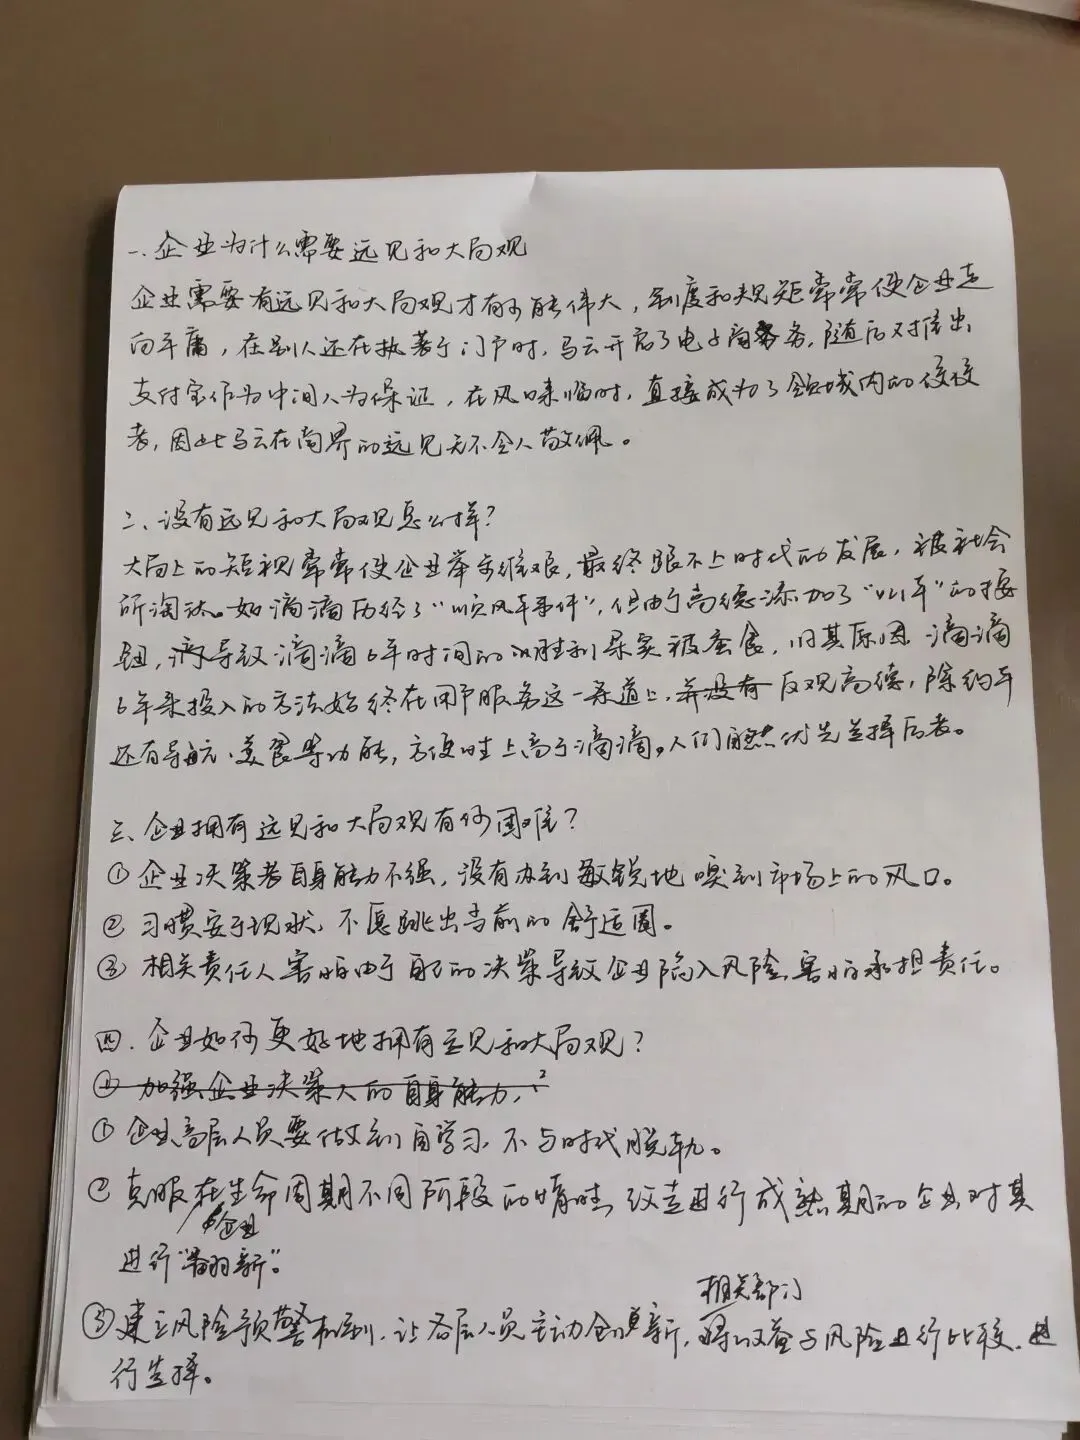 一、企业为什么需要远见和大局观
企业需要有远见和大局观才有可能伟大，制度和规矩常常使企业走
向平庸，在别人还在执著于门户时，马云开启了电子商务，随后又推出
支付宝作为中间人为保证，在风口来临时，直接成为了领域内的佼佼
者，因此马云在商界的远见无不令人敬佩。
二、没有远见和大局观怎么样？
大局上的短视常常使企业举步维艰，最终跟不上时代的发展，被社会
所淘汰。如滴滴历经了“顺风车事件”，但由于高德添加了“叫车”的按
钮，导致滴滴6年时间的胜利果实被蚕食，归其原因 滴滴
6年来投入的方法始终在用户服务这一条道上，并没有反观高德，除约车
还有导航、美食等功能，方便性上高于滴滴，人们自然优先选择后者。
三、企业拥有远见和大局观有何困难？
① 企业决策者自身能力不强，没有办到敏锐地嗅到市场上的风口。
② 习惯安于现状，不愿跳出当前的舒适圈。
③ 相关责任人害怕由于自己的决策导致企业陷入风险，害怕承担责任。
四、企业如何更好地拥有远见和大局观？
① 加强企业决策人的自身能力，
① 企业高层人员要做到自学习，不与时代脱轨。
② 克服在企业生命周期不同阶段的惰性，改造进行成熟期的企业对其
进行“翻新”。
③ 建立风险预警机制，让各层人员主动创新，相关部门将收益与风险进行比较，进
行选择。